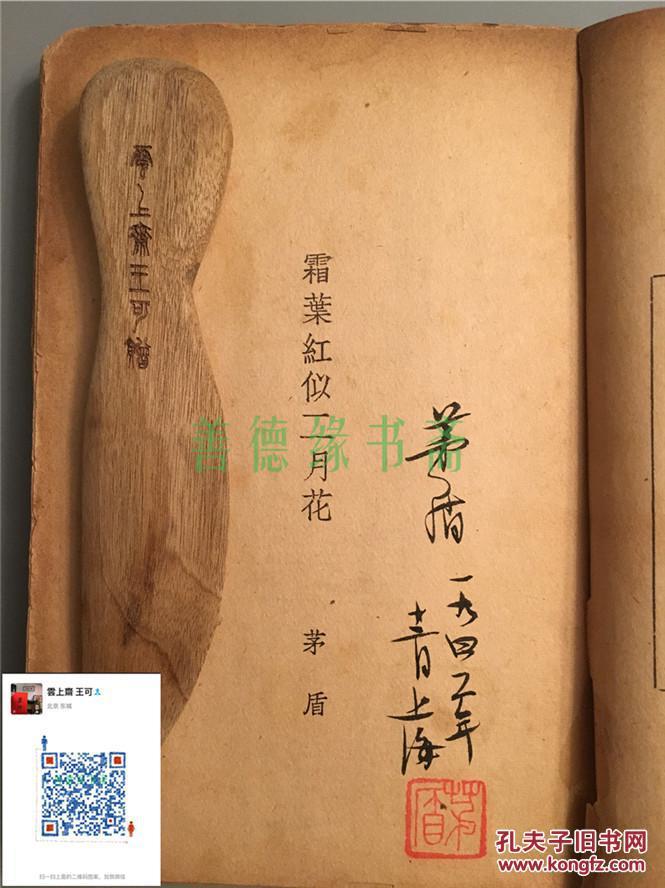 雲上齋王可贈
霜葉紅似二月花
茅盾
茅盾
一九四年
上海
茅盾
善德缘书斋
雲上齋 王可
北京 东城
扫一扫上面的二维码图案，加我微信
孔夫子旧书网
www.kongfz.com